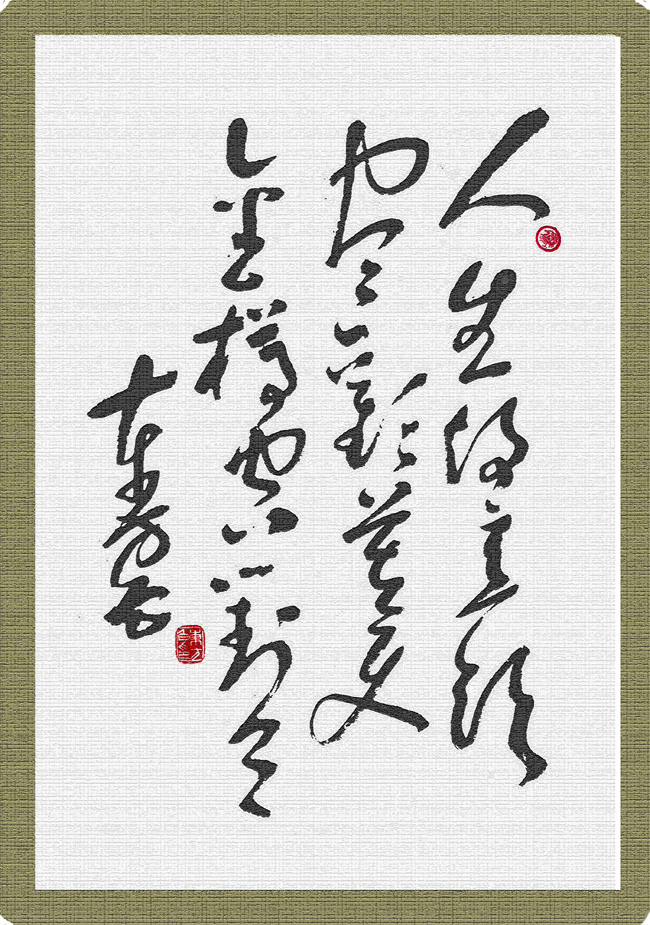 人生得意須
尽歡莫使
金樽空對月